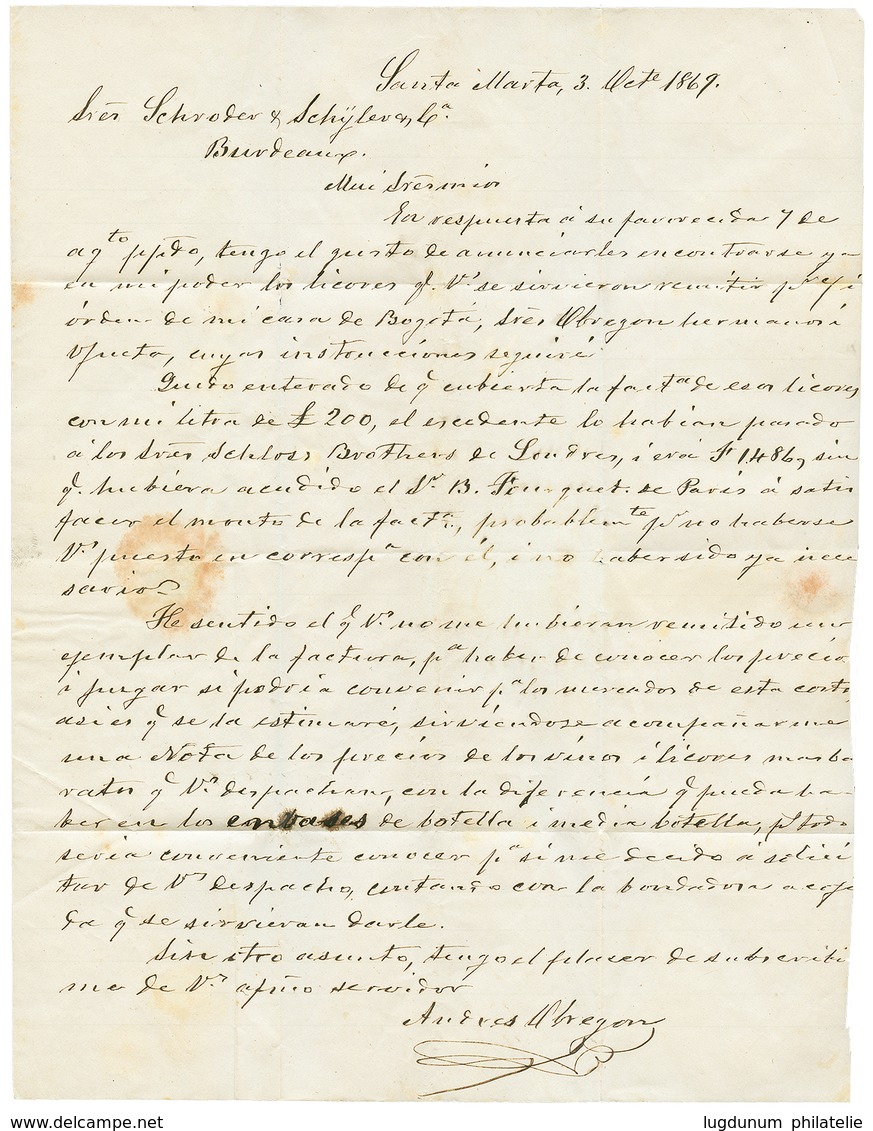 Santa Marta, 3. Octe 1869.
Srēs Schroder & Schÿler, & Ca.
Burdeaux.
Mui Srēs mios
En respuesta á su favorecida 7 de
agto ppdo, tengo el gusto de anunciarles encontrarse ya
en mi poder los licores q̄. Vs. se sirvieron remitir pr
órden de mi casa de Bogotá, Srēs Obregon hermanos i
cuyas instrucciones seguiré.
Quedo enterado de q̄ cubierta la facta de esos licores
con mi letra de £ 200, el escedente lo habian pasado
á los Srēs Schloss Brothers de Londres, i era F 1486, sin
q̄. hubiera acudido el Sr. B. Fourquet. de Paris á satis
facer el monto de la facta., probablemte pr no haberse
Vs. puesto en correspa con él, i no haber sido ya nece
sario.
He sentido el q̄ Vs. no me hubieran remitido un
ejemplar de la factura, pa haber de conocer los precios
i juzgar si podria convenir pa los mercados de esta costa,
asi es q̄ se la estimaré, sirviéndose acompañarme
una Nota de los precios de los vinos i licores mas ba
ratos q̄ Vs. despachan, con la diferencia q̄ pueda ha
ber en los envases de botella i media botella, ps todo
seria conveniente conocer pa si me decido á solici
tar de Vs. despacho, contando con la bondadosa acoji
da q̄ se sirvieran darle.
Sin otro asunto, tengo el placer de subscribir
me de Vs. afmo servidor
Andres Obregon
www.delcampe.net
lugdunum philatelie